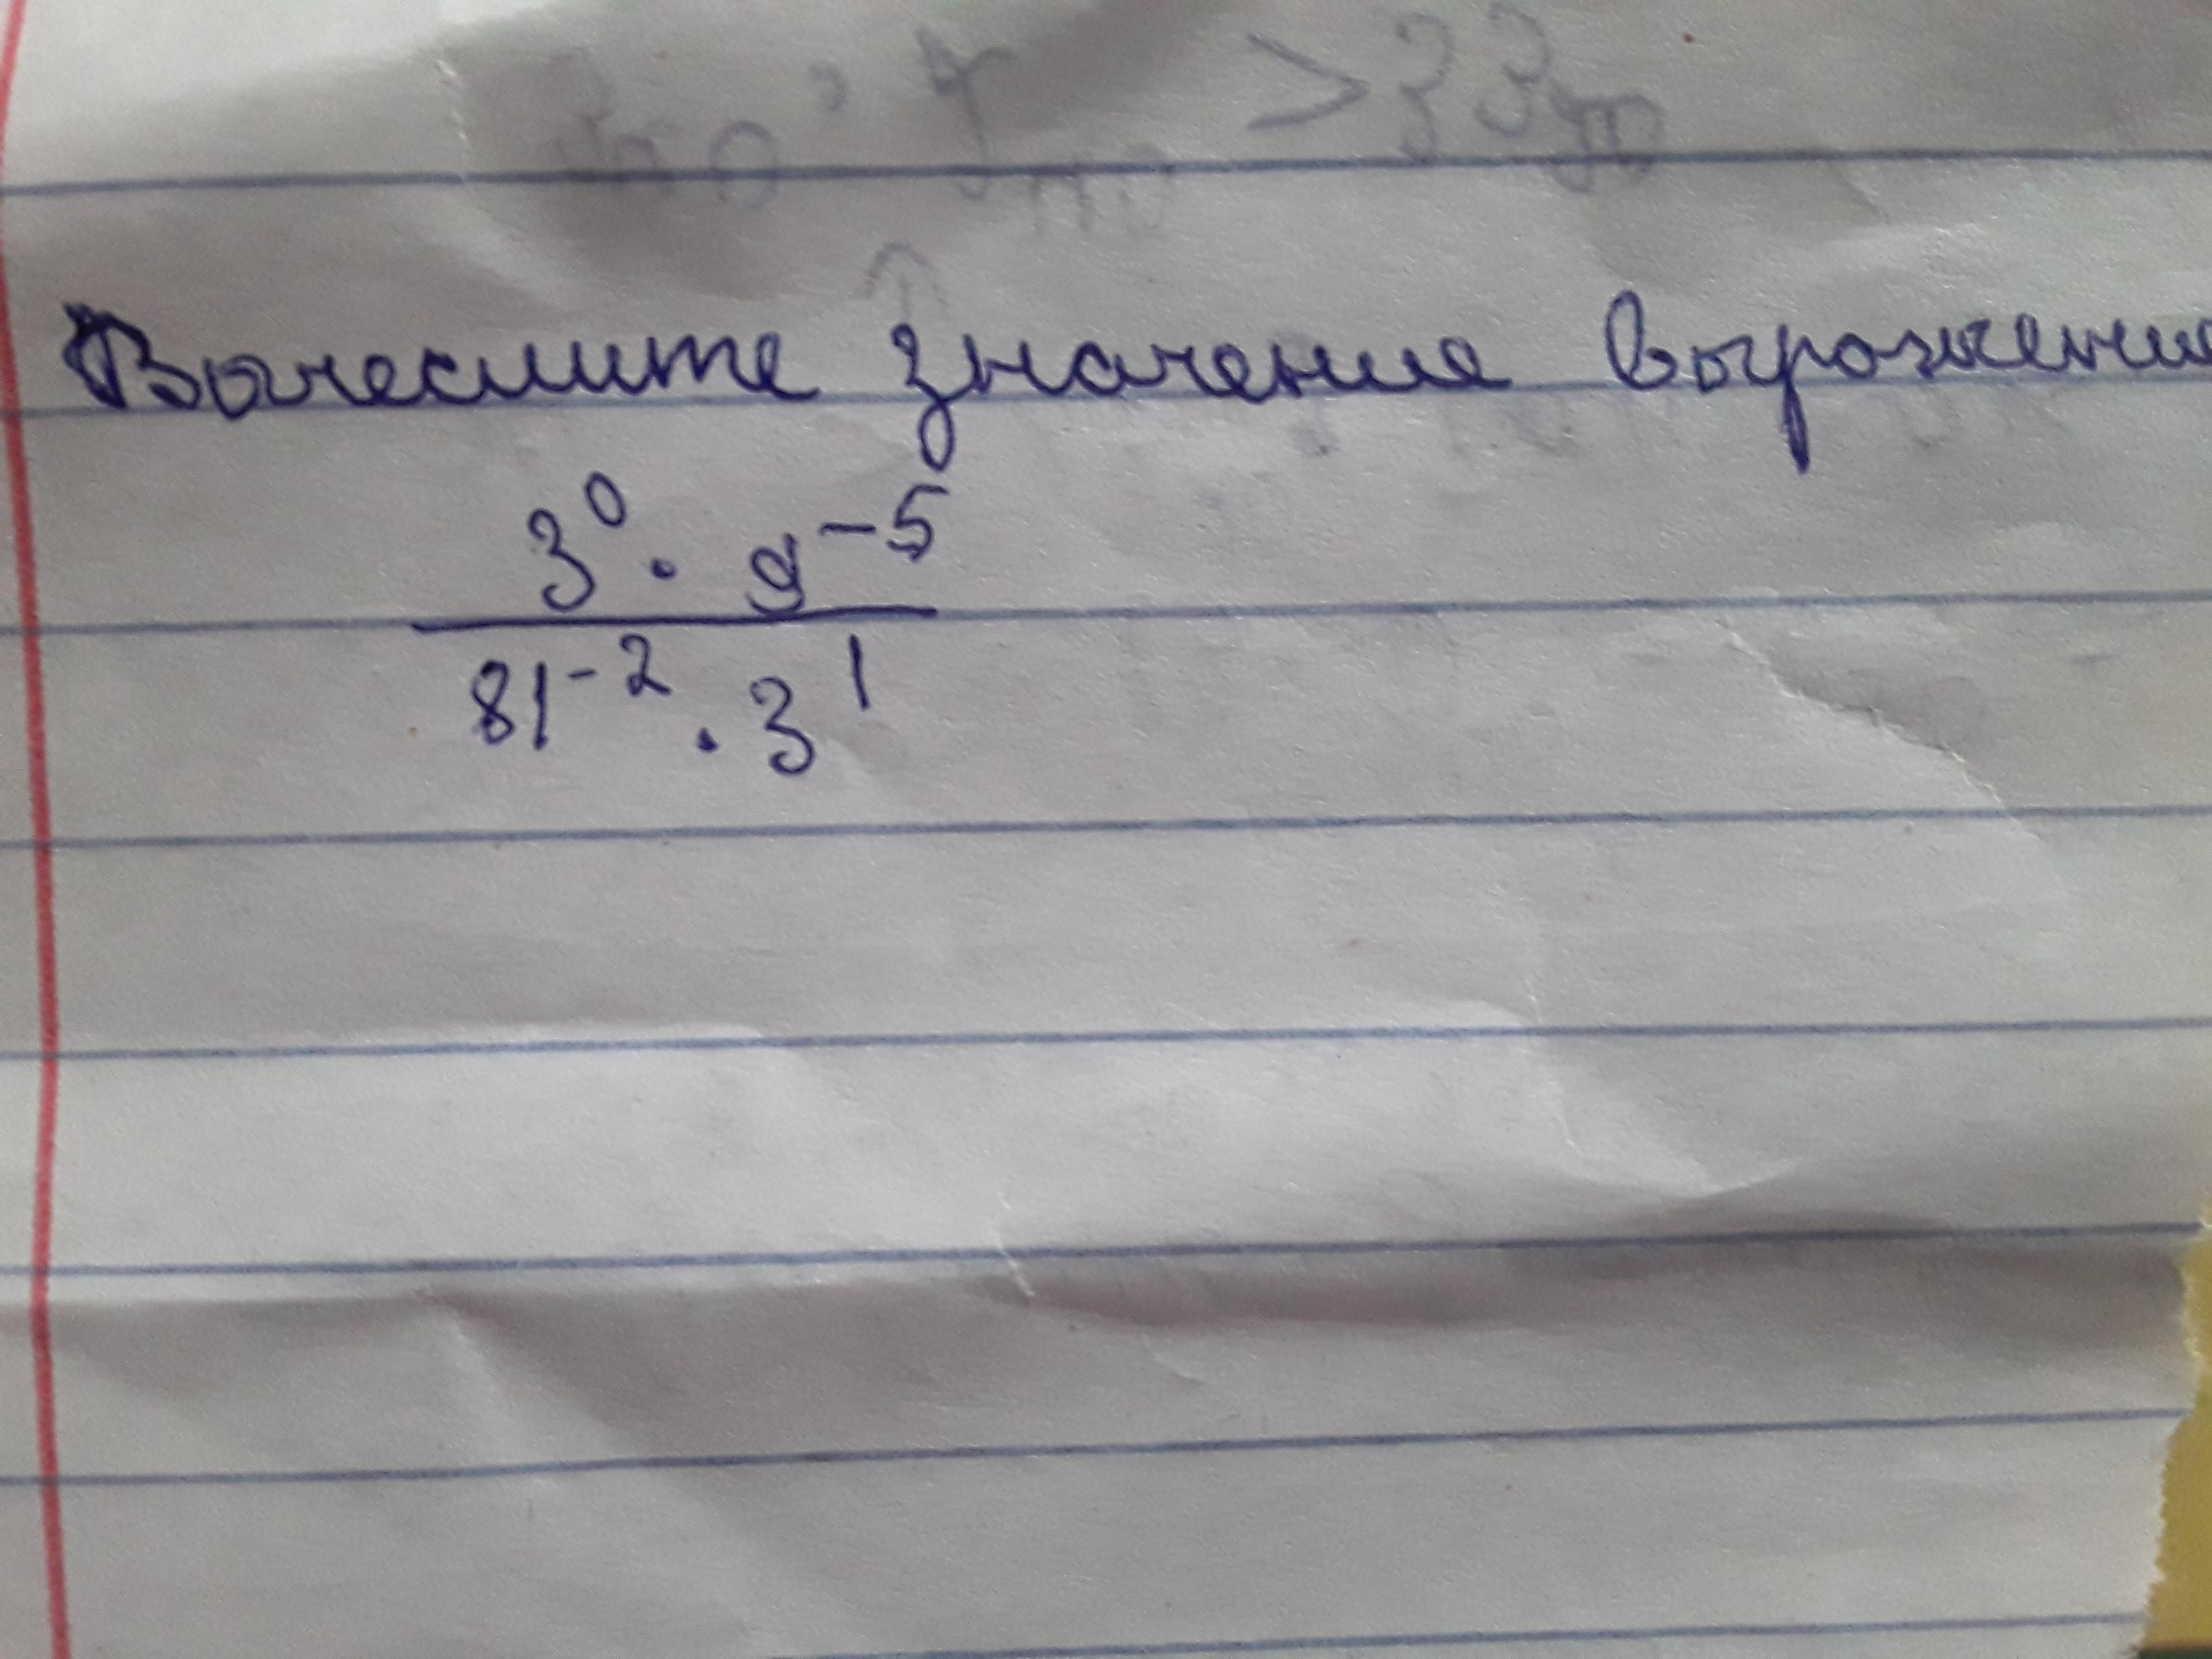 Вычеслите значение выражение
3⁰ · 9⁻⁵
81⁻² · 3¹